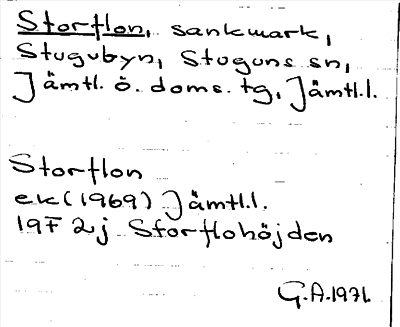 Storflon, sankmark,
Stugubyn, Stuguns sn,
Jämtl. ö. doms. tg, Jämtl.l.
Storflon
ek (1969) Jämtl.l.
19F 2j Storflohöjden
G.A.1971.